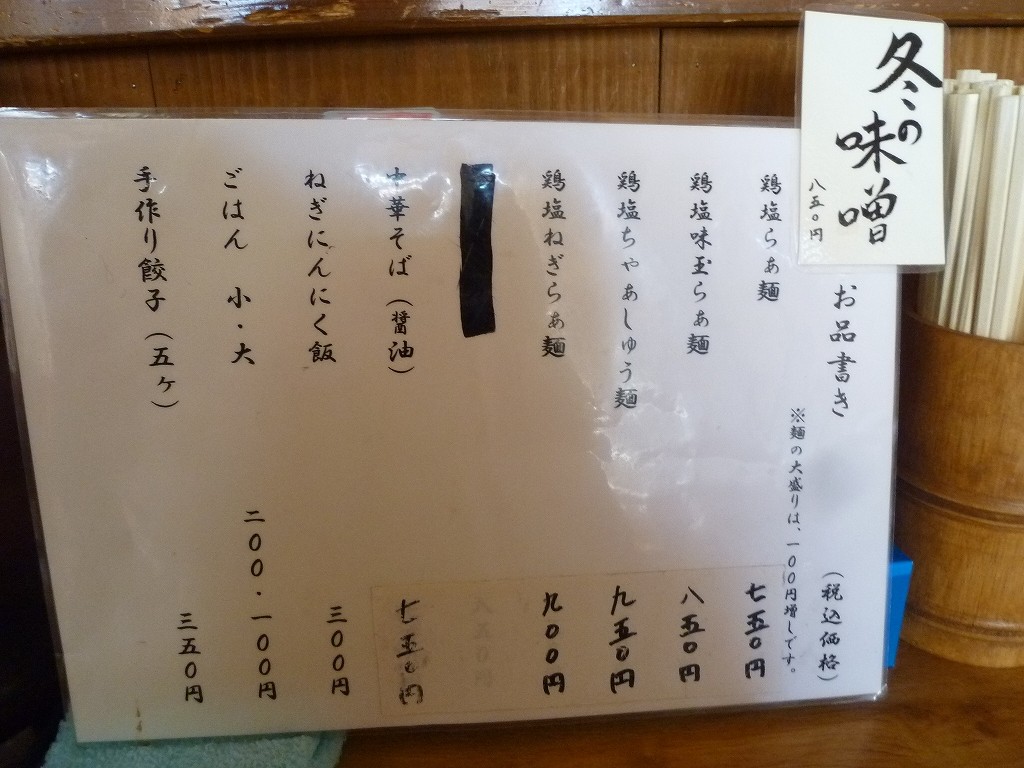 冬の
味噌
八五〇円
お品書き (税込価格)
※麺の大盛りは、一〇〇円増しです。
鶏塩らぁ麺 七五〇円
鶏塩味玉らぁ麺 八五〇円
鶏塩ちゃぁしゅう麺 九五〇円
鶏塩ねぎらぁ麺 九〇〇円
中華そば(醤油) 七五〇円
ねぎにんにく飯 三〇〇円
ごはん 小・大 二〇〇・一〇〇円
手作り餃子(五ヶ) 三五〇円